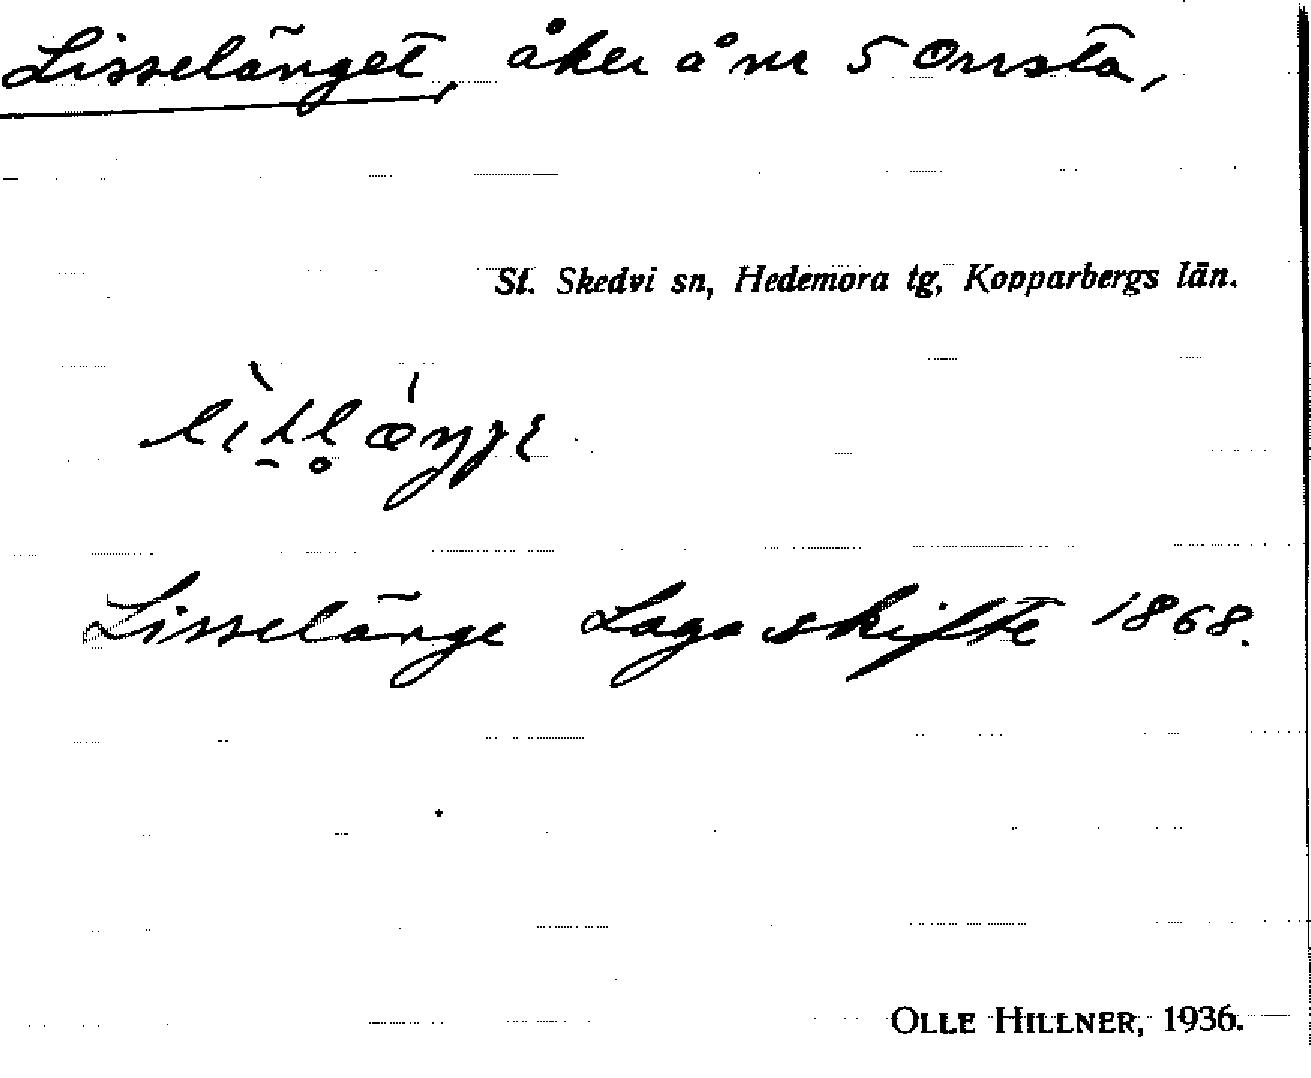 Lisselänget, åker å nr 5 Orrsta,
St. Skedvi sn, Hedemora tg, Kopparbergs län.
Lisselänge Laga skifte 1868.
OLLE HILLNER, 1936.